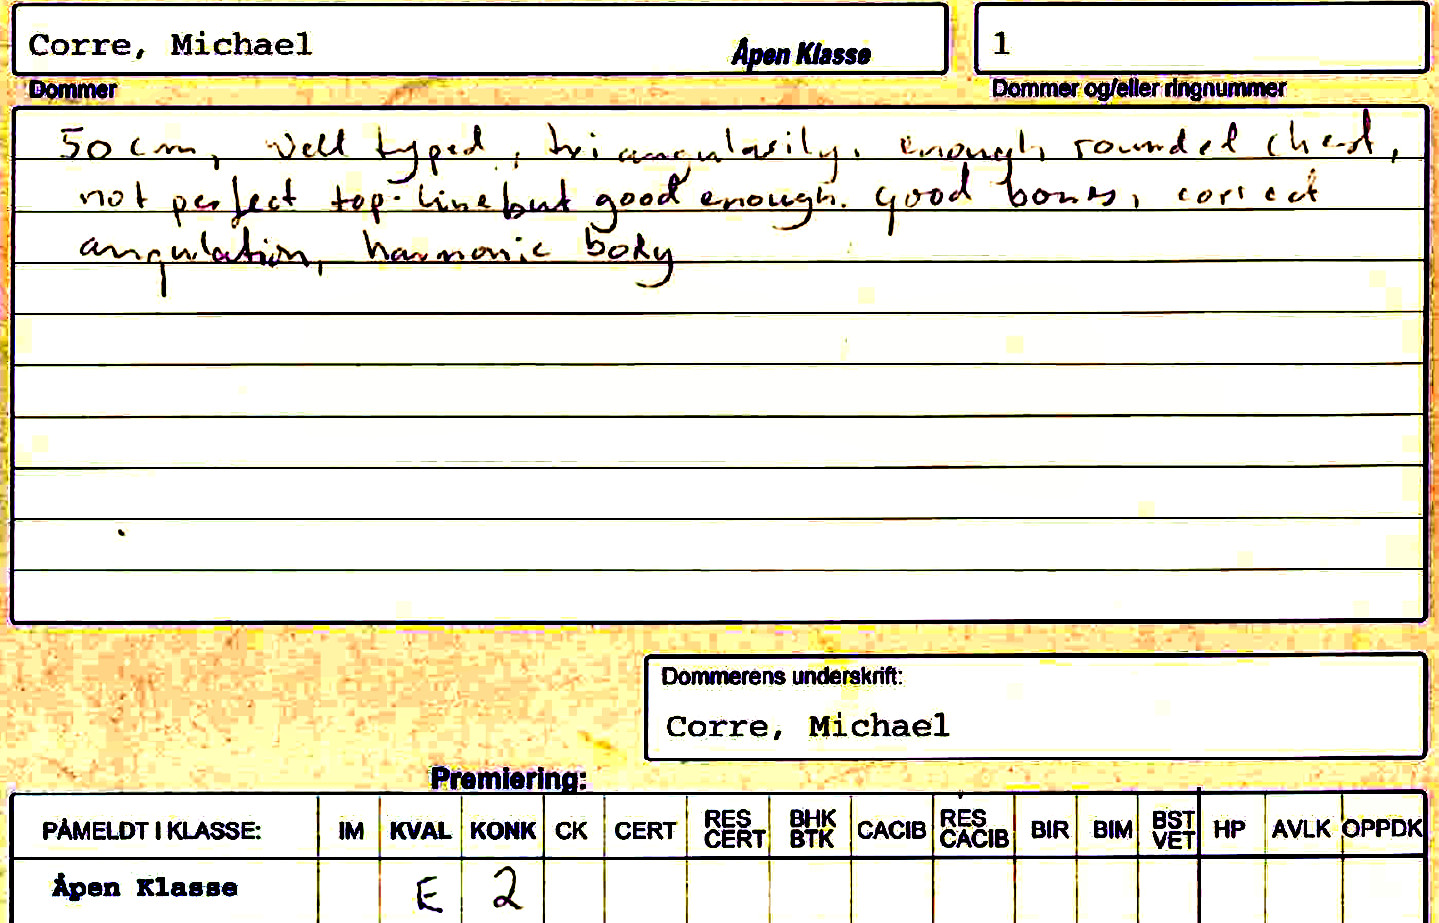 Corre, Michael Åpen Klasse 1
Dommer Dommer og/eller ringnummer
50 cm, well typed, triangularily, enough rounded chest,
not perfect top-line but good enough. good bones, correct
angulation, harmonic body
Dommerens underskrift:
Corre, Michael
Premiering:
PÅMELDT I KLASSE: IM KVAL KONK CK CERT RES CERT BHK BTK CACIB RES CACIB BIR BIM BST VET HP AVLK OPPDK
Åpen Klasse E 2